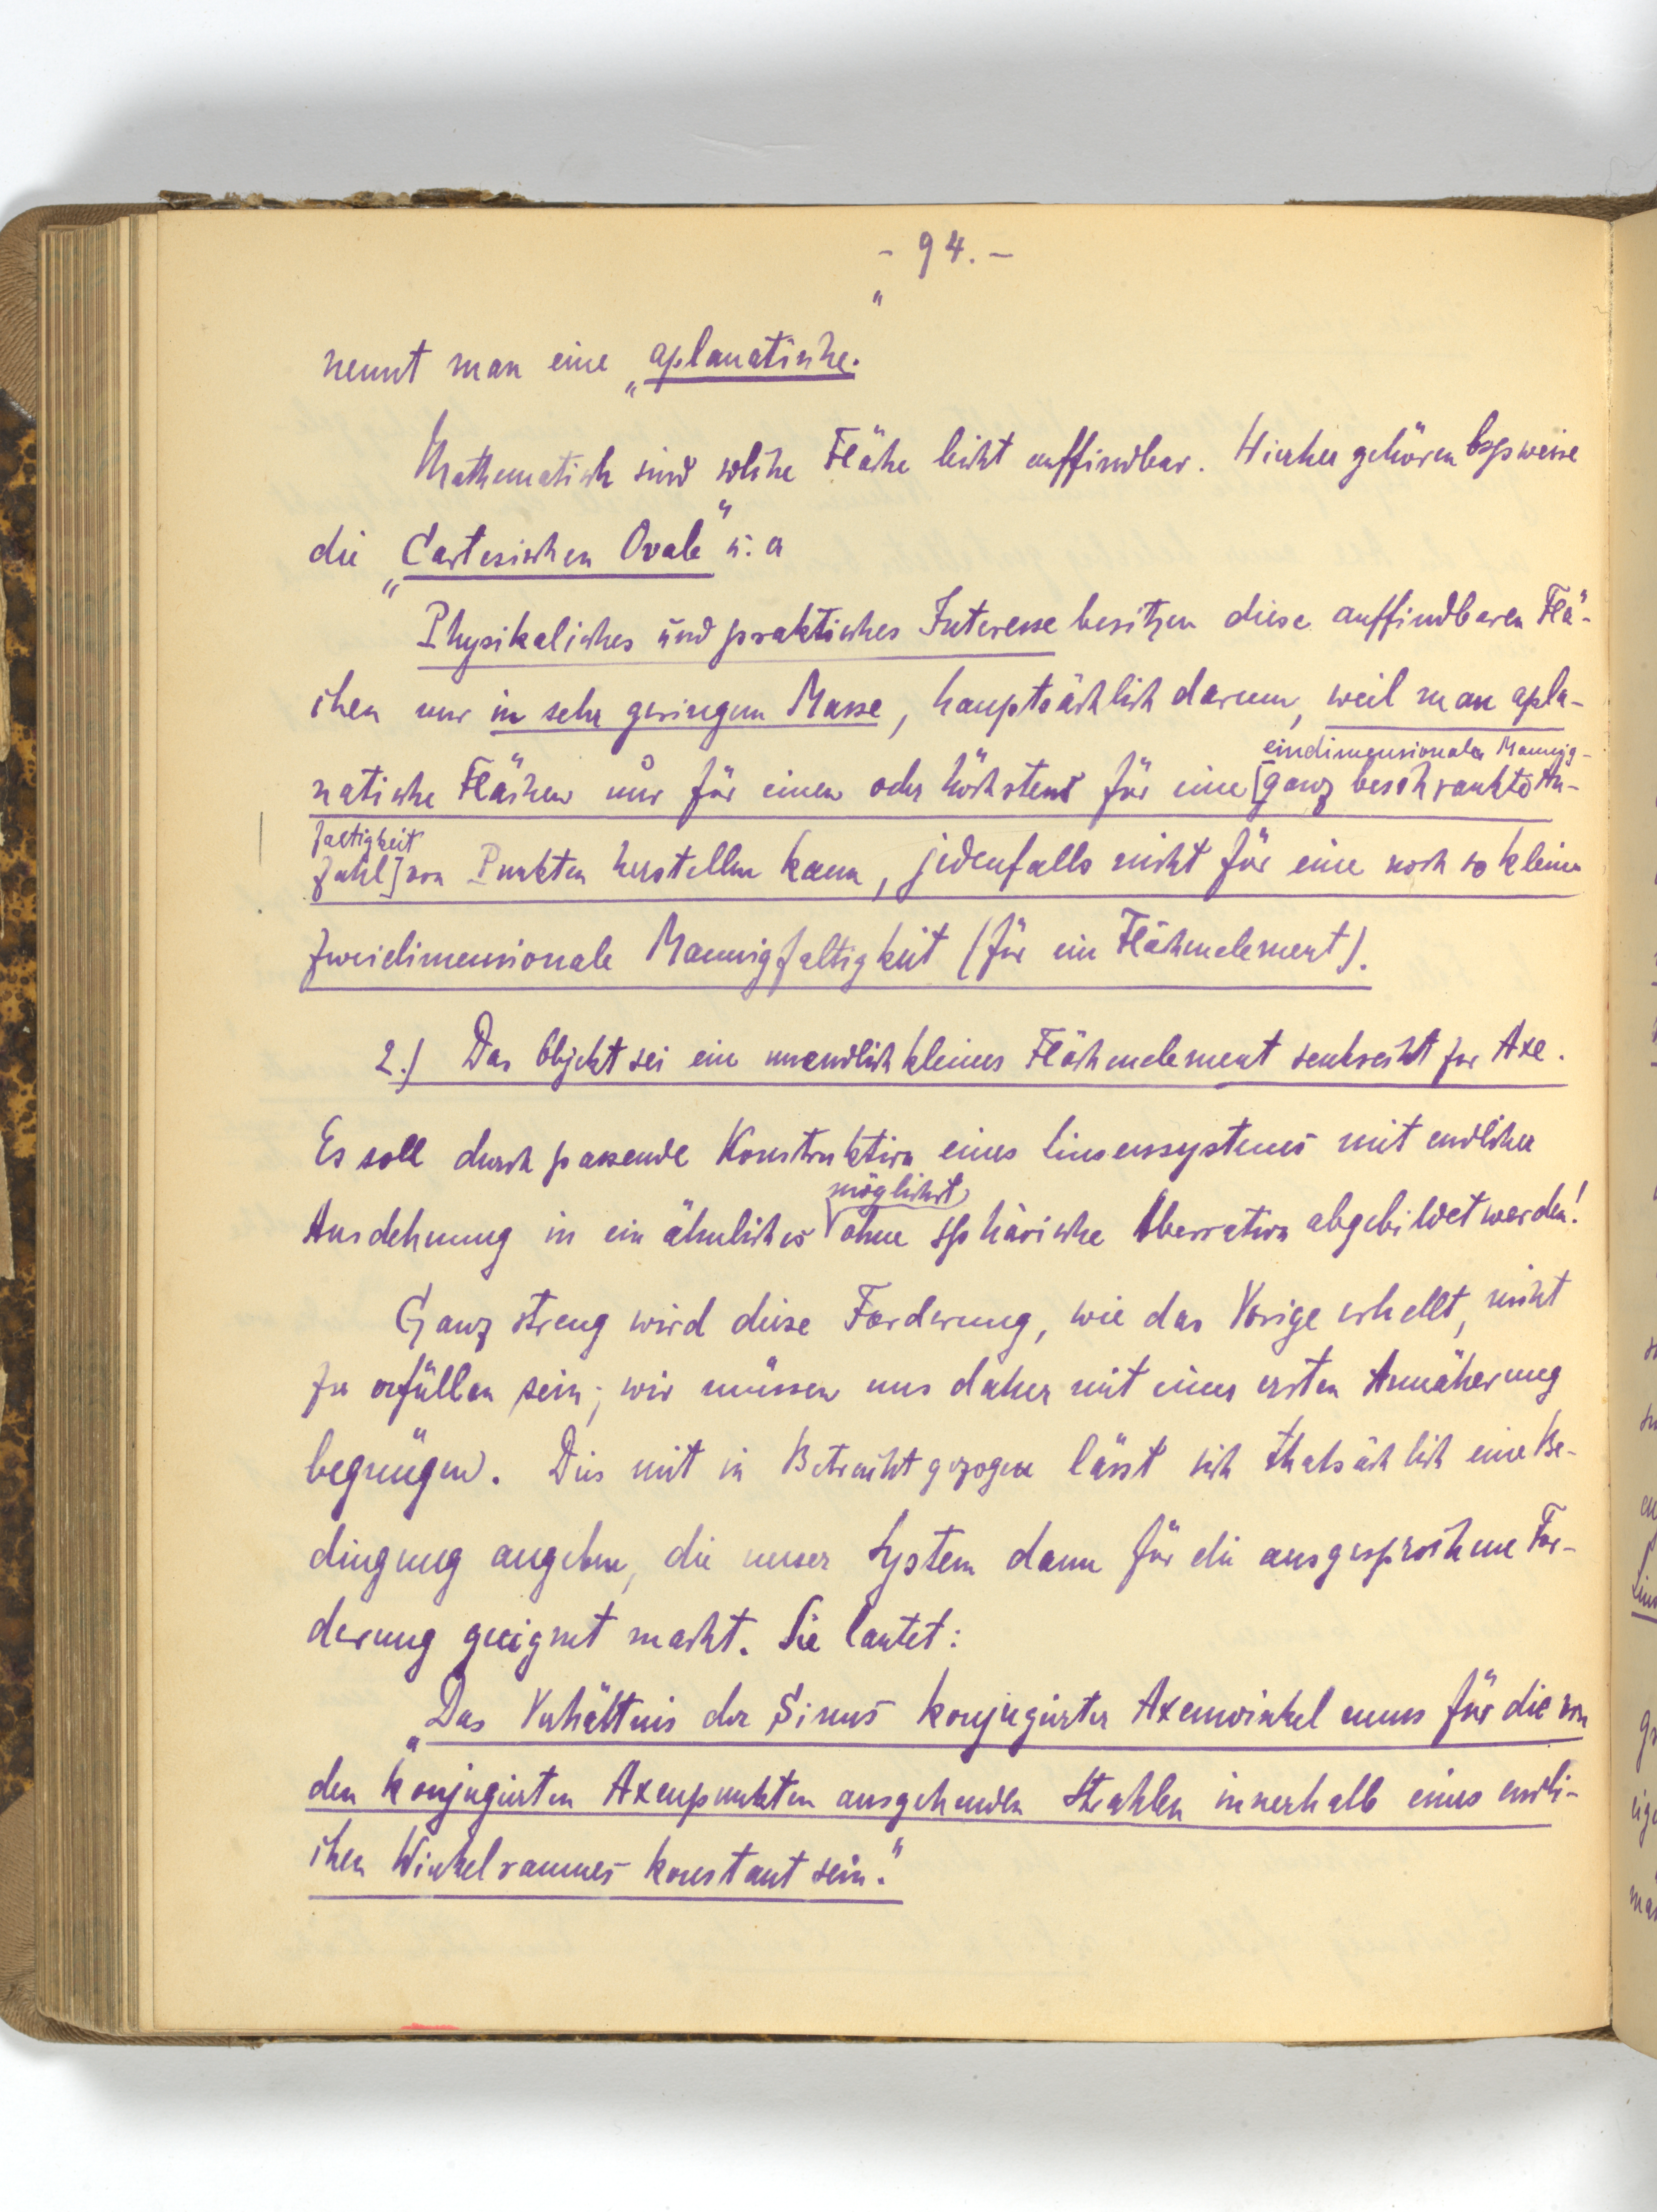 - 94. -
nennt man eine „aplanatische."
Mathematisch sind solche Fläche leicht auffindbar. Hierher gehören bspsweise
die „Cartesischen Ovale" u. a
Physikalisches und praktisches Interesse besitzen diese auffindbaren Flä-
chen nur in sehr geringem Masse, hauptsächlich darum, weil man apla-
eindimensionale Mannig-
natische Flächen nur für einen oder höchstens für eine [ganz beschränkte An-
faltigkeit
zahl] von Punkten herstellen kann, jedenfalls nicht für eine noch so kleine
zweidimensionale Mannigfaltigkeit (für ein Flächenelement).
2.) Das Objekt sei ein unendlich kleines Flächenelement senkrecht zur Axe.
Es soll durch passende Konstruktion eines Linsensystems mit endlicher
möglichst
Ausdehnung in ein ähnliches ohne sphärische Aberration abgebildet werden!
Ganz streng wird diese Forderung, wie das Vorige erhellt, nicht
zu erfüllen sein; wir müssen uns daher mit einer ersten Annäherung
begnügen. Dies mit in Betracht gezogen lässt sich thatsächlich eine Be-
dingung angeben, die unser System dann für die ausgesprochene For-
derung geeignet macht. Sie lautet:
„Das Verhältnis der Sinus konjugierter Axenwinkel muss für die von
den konjugierten Axenpunkten ausgehenden Strahlen innerhalb eines endli-
chen Winkelraumes konstant sein."